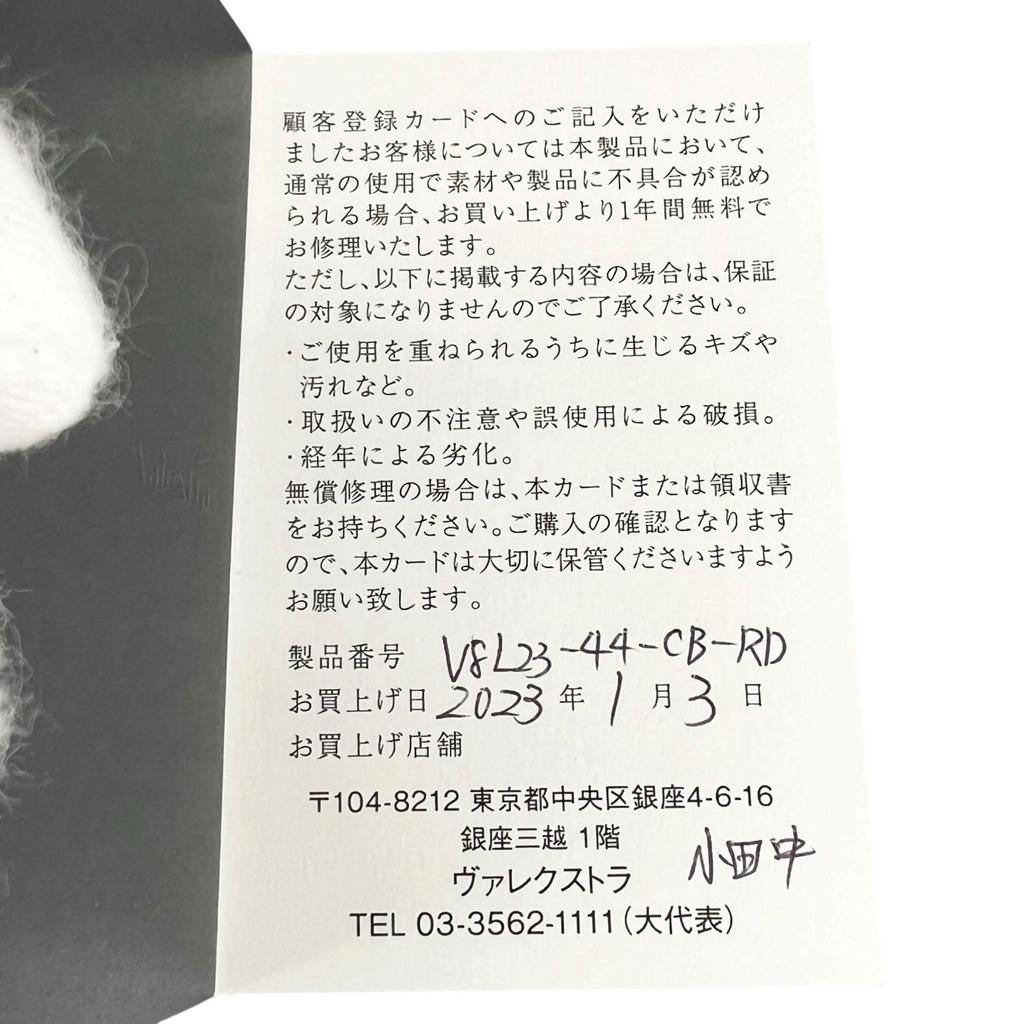 顧客登録カードへのご記入をいただけ
ましたお客様については本製品において、
通常の使用で素材や製品に不具合が認め
られる場合、お買い上げより1年間無料で
お修理いたします。
ただし、以下に掲載する内容の場合は、保証
の対象になりませんのでご了承ください。
・ご使用を重ねられるうちに生じるキズや
汚れなど。
・取扱いの不注意や誤使用による破損。
・経年による劣化。
無償修理の場合は、本カードまたは領収書
をお持ちください。ご購入の確認となります
ので、本カードは大切に保管くださいますよう
お願い致します。
製品番号 V8L23-44-CB-RD
お買上げ日 2023 年 1 月 3 日
お買上げ店舗
〒104-8212 東京都中央区銀座4-6-16
銀座三越 1階
ヴァレクストラ 小田中
TEL 03-3562-1111(大代表)